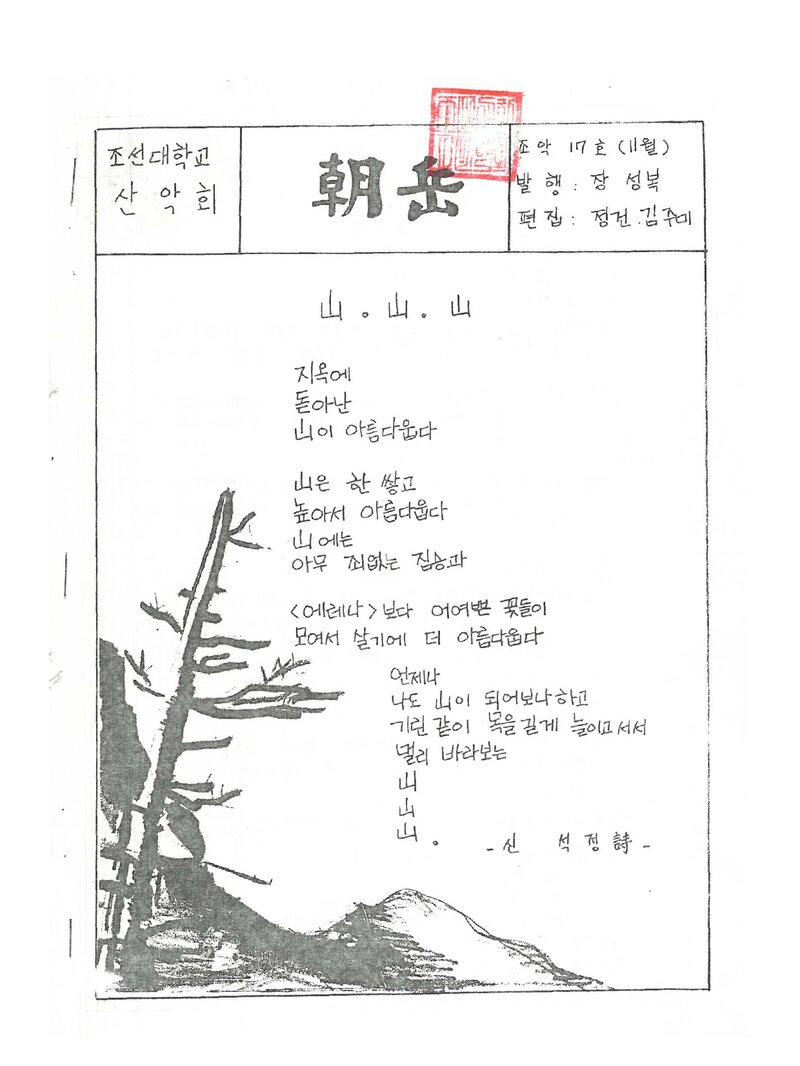 조선대학교
산 악 회
朝岳
조악 17호 (11월)
발 행 : 장 성복
편집 : 정건.김주미
山 . 山 . 山
지옥에
돋아난
山이 아름다웁다
山은 한 쌓고
높아서 아름다웁다
山에는
아무 죄없는 짐승과
<에레나>보다 어여쁜 꽃들이
모여서 살기에 더 아름다웁다
언제나
나도 山이 되어보나 하고
기린같이 목을 길게 늘이고 서서
멀리 바라보는
山
山
山.
- 신 석정 詩 -